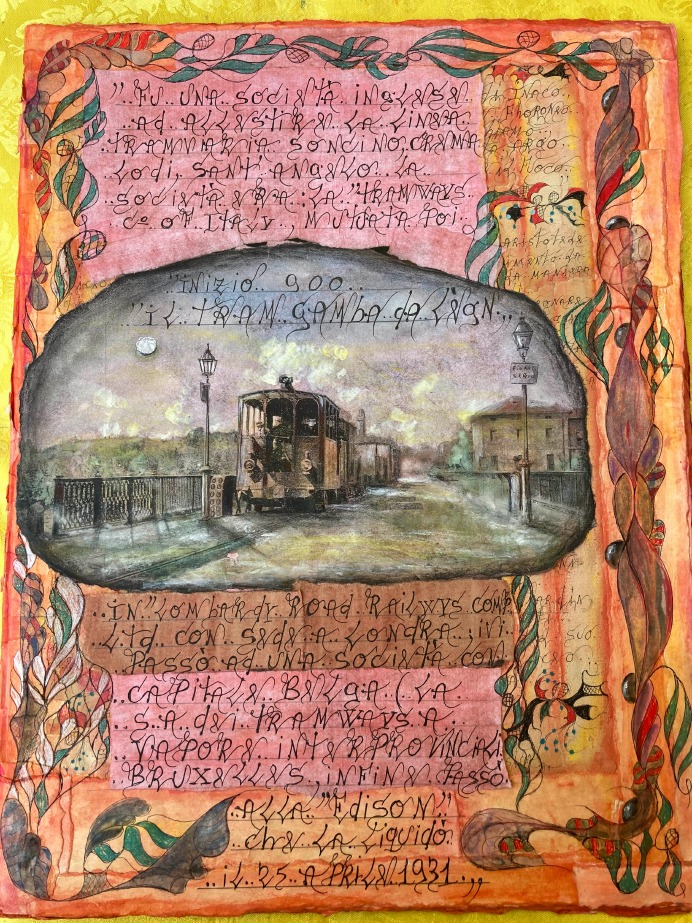 "..FU..UNA..SOCIETÀ..INGLESE..
..AD..ALLESTIRE..LA..LINEA..
..TRAMVIARIA..SONCINO,CREMA
LODI,..SANT'..ANGELO..LA..
..SOCIETÀ..ERA..:LA.."TRAMWAYS
..Co..OF..ITALY..,MUTATA..POI..
.."INIZIO..900..
.."IL..TRAM..GAMBA..DA..LEGN,,
..IN"LOMBARDY..ROAD..RAILWYS..COMP
LTD..CON..SEDE..A..LONDRA..;IVI
..PASSÒ..AD..UNA..SOCIETÀ..CON
..CAPITALE..BELGA..(LA..
..S.A..DEI..TRAMWAYS..A..
..VAPORE..INTERPROVINCIALI
BRUXELLES..,INFINE..PASSÒ
..ALLA.."EDISON"..
..CHE..LA..LIQUIDÒ..
..IL..25..APRILE..1931..,,
INACO
FHORONEO
ARGO
ARISTOTELE
LA MANIERA
SUO